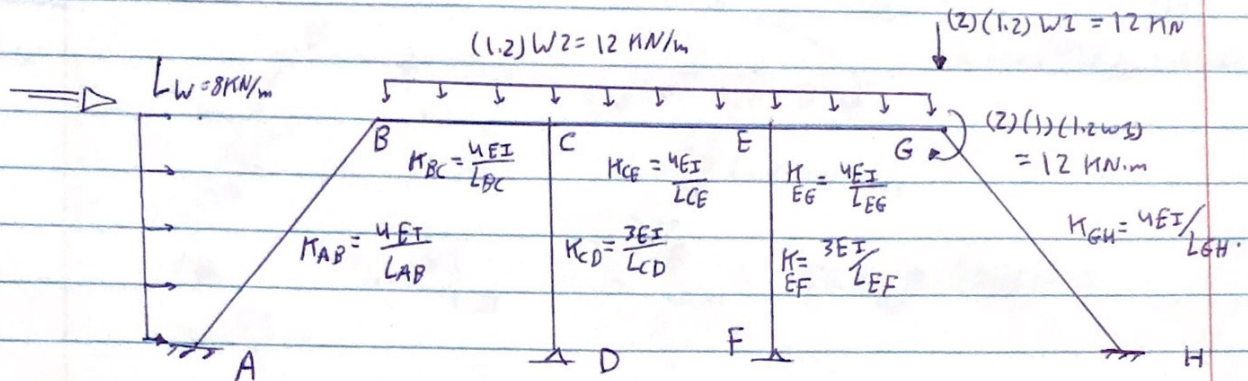 (1.2) W2 = 12 KN/m
(2)(1.2) W1 = 12 KN
LW = 8KN/m
(2)(1)(1.2W1)
= 12 KN.m
B
C
E
G
K_BC = 4EI/L_BC
K_CE = 4EI/L_CE
K_EG = 4EI/L_EG
K_GH = 4EI/L_GH.
K_AB = 4EI/L_AB
K_CD = 3EI/L_CD
K_EF = 3EI/L_EF
A
D
F
H